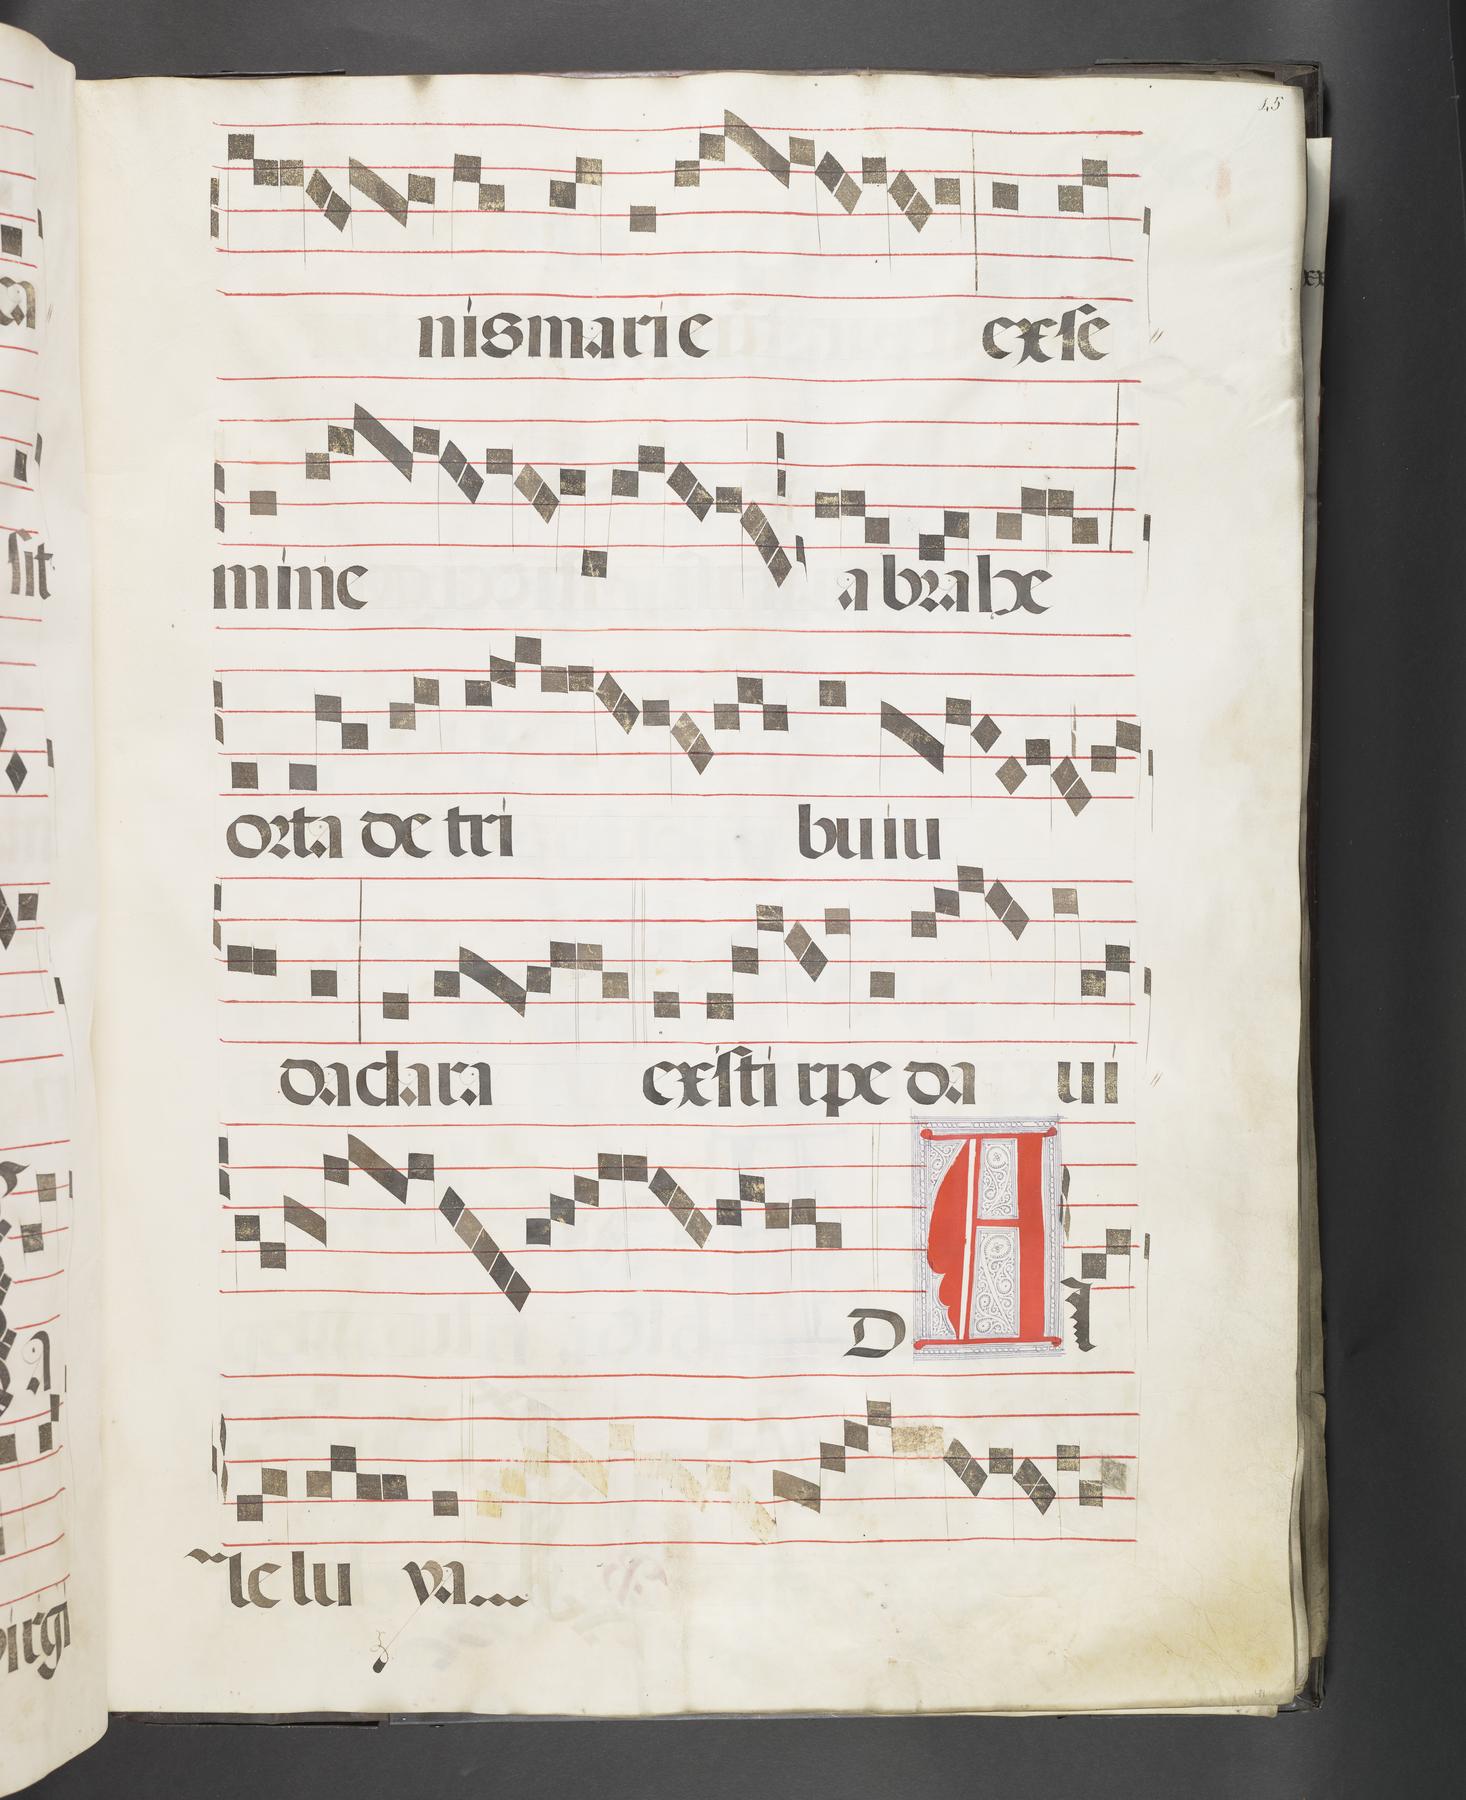 45
nis marie exse
mine abrahe
orta de tri buiu
da clara ex sti rpe da ui
D A l
le lu ya...